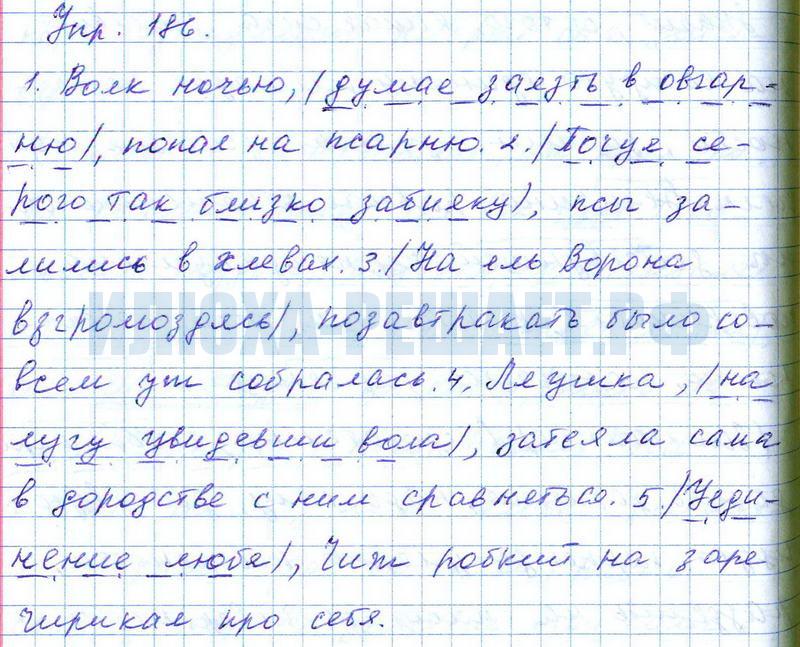 Упр. 186.
1. Волк ночью, /думая залезть в овчар-
ню/, попал на псарню. 2. /Почуя се-
рого так близко забияку/, псы за-
лились в хлевах. 3. /На ель Ворона
взгромоздясь/, позавтракать было со-
всем уж собралась. 4. Лягушка, /на
лугу увидевши вола/, затеяла сама
в дородстве с ним сравняться. 5 /Уеди-
нение любя/, Чиж робкий на заре
чирикал про себя.
ИЛЮХА-РЕШАЕТ.РФ